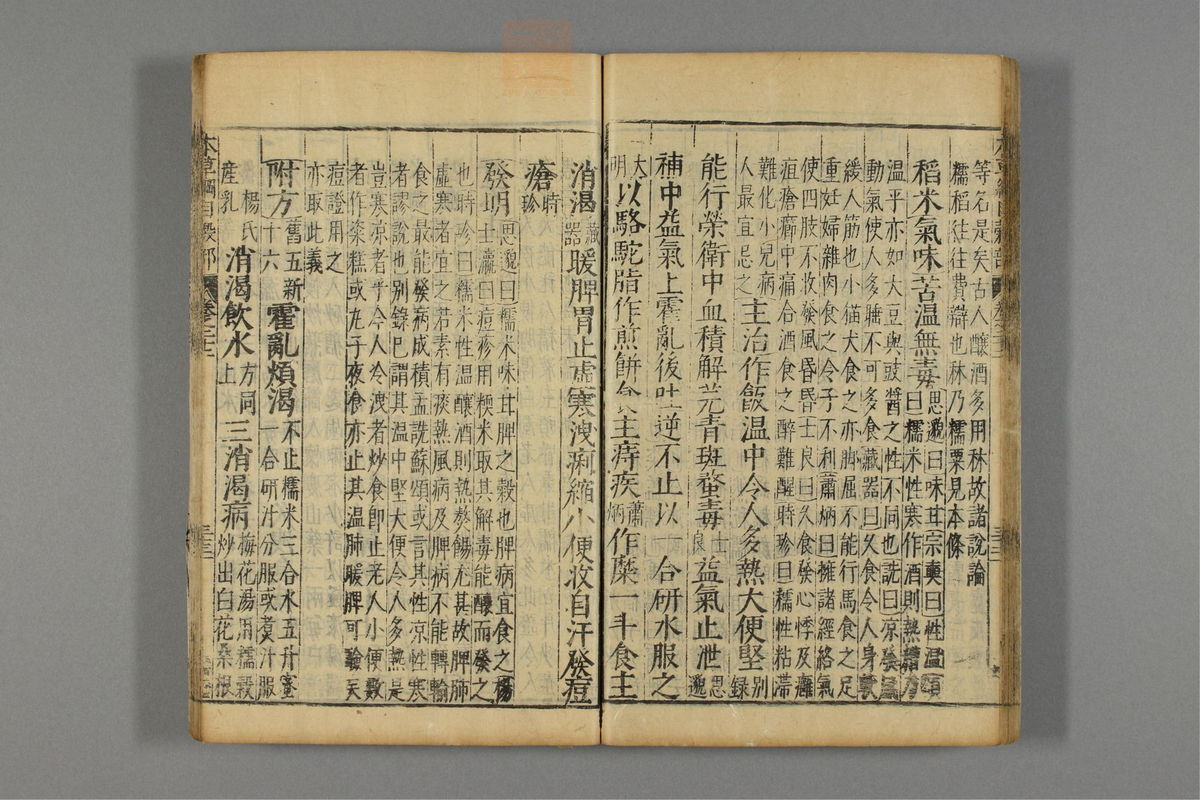 等名是矣古人釀酒多用秫故諸說論
糯稻往往費辯也秫乃糯粟見本條
稻米氣味苦溫無毒思邈曰味甘宗奭曰性溫頌
曰糯米性寒作酒則熱糟乃
溫平亦如大豆與豉醬之性不同也詵曰涼發風
動氣使人多睡不可多食藏器曰久食令人身軟
緩人筋也小猫犬食之亦脚屈不能行馬食之足
重妊婦雜肉食之令子不利蕭炳曰擁諸經絡氣
使四肢不收發風昏昏士良曰久食發心悸及癰
疽瘡癤中痛合酒食之醉難醒時珍曰糯性粘滯
難化小兒病
人最宜忌之主治作飯溫中令人多熱大便堅別
錄
能行榮衛中血積解芫青斑蝥毒士
良益氣止泄思
邈
補中益氣止霍亂後吐逆不止以一合研水服之
大
明以駱駝脂作煎餅食主痔疾蕭
炳作糜一斗食主
消渴藏
器暖脾胃止虛寒洩痢縮小便收自汗發痘
瘡時
珍
發明思邈曰糯米味甘脾之穀也脾病宜食之楊
士瀛曰痘疹用粳米取其解毒能釀而發之
也時珍曰糯米性溫釀酒則熱熬餳尤甚故脾肺
虛寒者宜之若素有痰熱風病及脾病不能轉輸
食之最能發病成積孟詵蘇頌或言其性涼性寒
者謬說也別錄已謂其溫中堅大便令人多熱是
豈寒涼者乎今人冷洩者炒食即止老人小便數
者作粢糕或丸子夜食亦止其溫肺暖脾可驗矣
痘證用之
亦取此義
附方舊五新
十六霍亂煩渴不止糯米三合水五升蜜
一合研汁分服或煮汁服
楊氏
産乳消渴飲水方同
上三消渴病梅花湯用糯穀
炒出白花桑根
本草綱目穀部
卷二十二